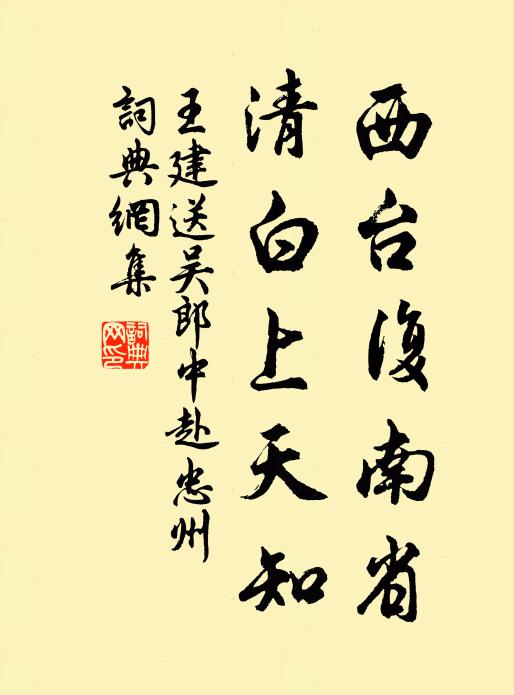 西台復南省
清白上天知
王建送吴郎中赴忠州
詞典網集
詞典
网印